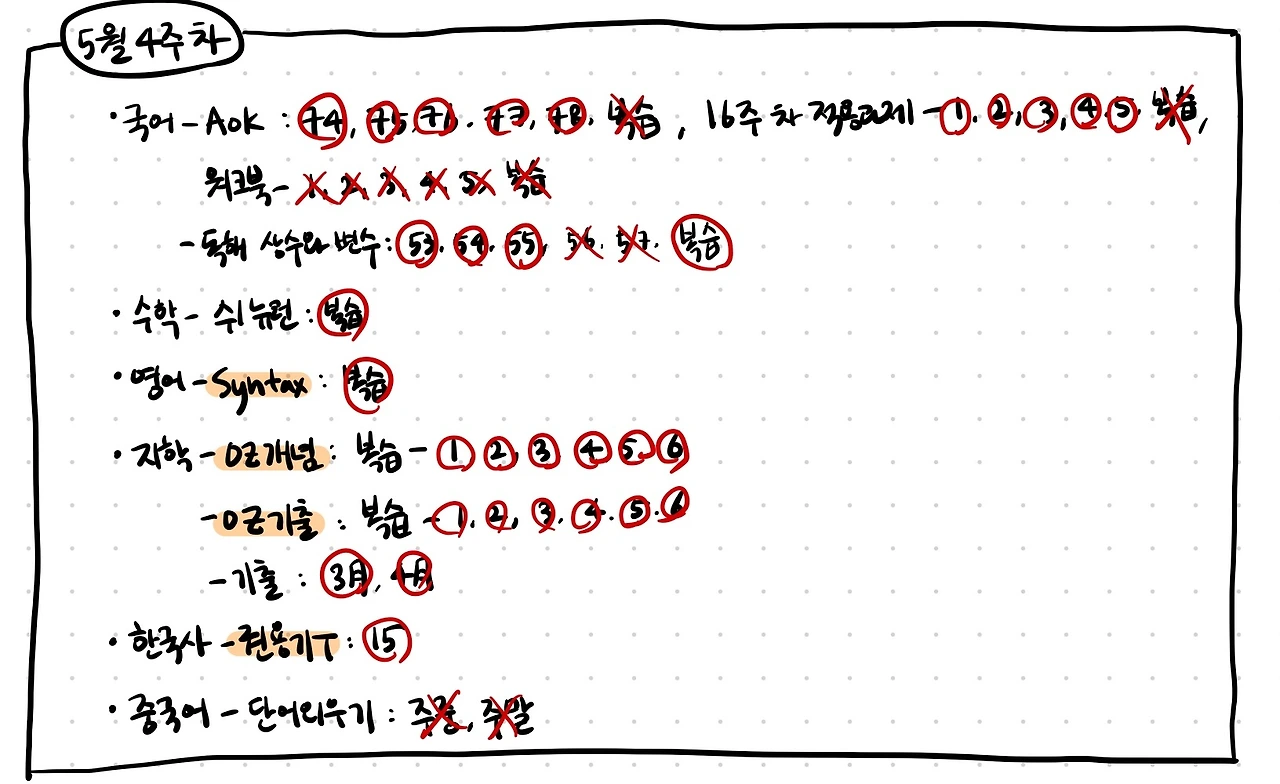 5월 4주차
·국어-Aok : 74, 75, 76, 77, 78, 복습, 16주차 적용과제-1, 2, 3, 4, 5, 복습,
워크북-1, 2, 3, 4, 5, 복습
-독해 상수와 변수: 53, 54, 55, 56, 57, 복습
·수학- 쉬 뉴런 : 복습
·영어-Syntax : 복습
·지학-OZ개념 : 복습-1, 2, 3, 4, 5, 6
-OZ기출 : 복습-1, 2, 3, 4, 5, 6
-기출 : 3月, 4月
·한국사-권용기T : 15
·중국어-단어외우기 : 주중, 주말